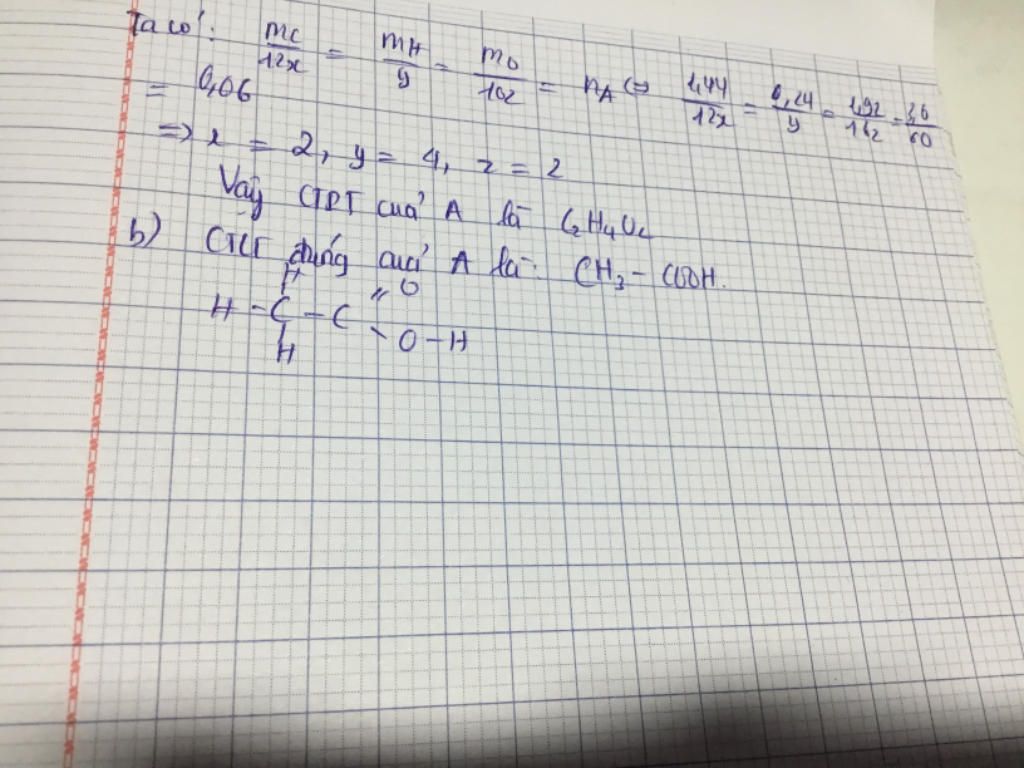 Ta có: mC/12x = mH/y = mO/16z = nA ⇔ 1,44/12x = 0,24/y = 1,92/16z = 3,6/60
= 0,06
=> x = 2, y = 4, z = 2
Vậy CTPT của A là C2H4O2
b) CTCT đúng của A là: CH3 - COOH.
H O
H - C - C
H O - H